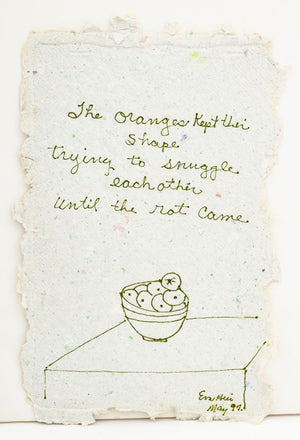 The oranges Kept their
shape
trying to snuggle
each other
Until the rot came
May 97.